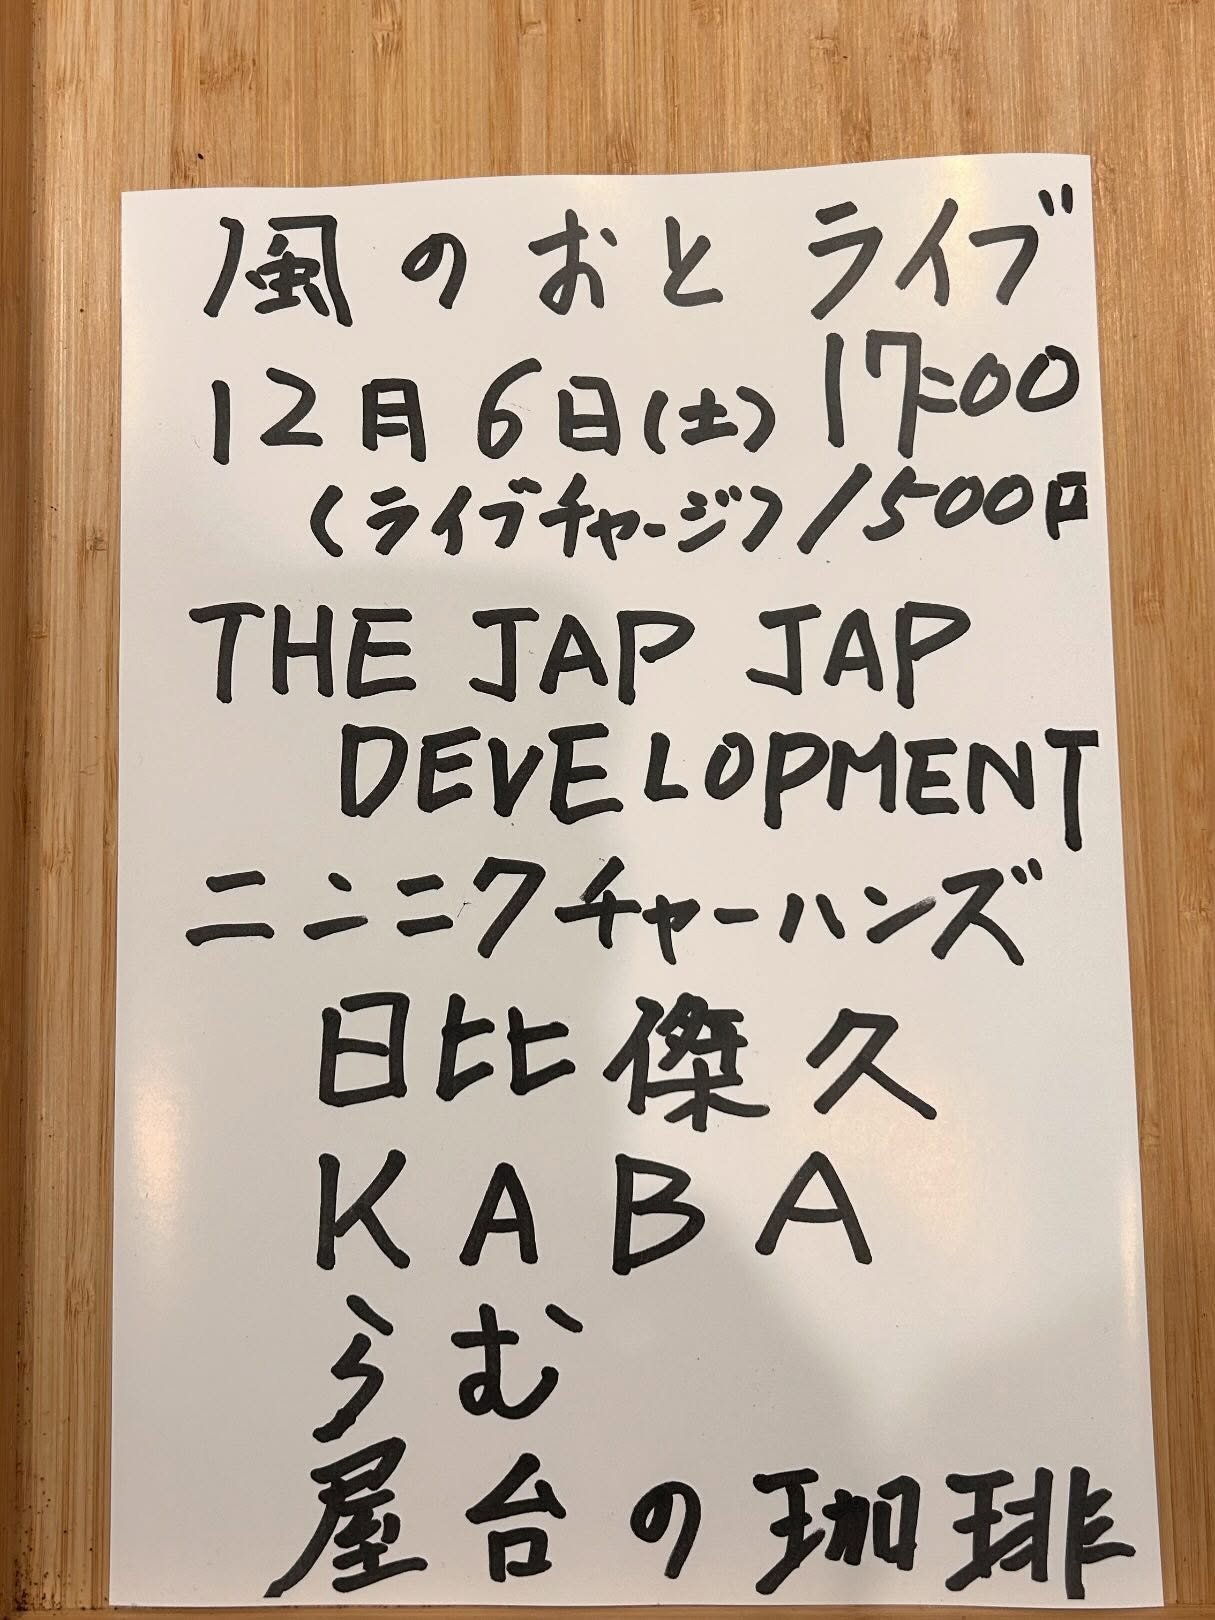 風のおとライブ
12月6日(土) 17:00
(ライブチャージ) 1500円
THE JAP JAP
DEVELOPMENT
ニンニクチャーハンズ
日比傑久
KABA
らむ
屋台の珈琲